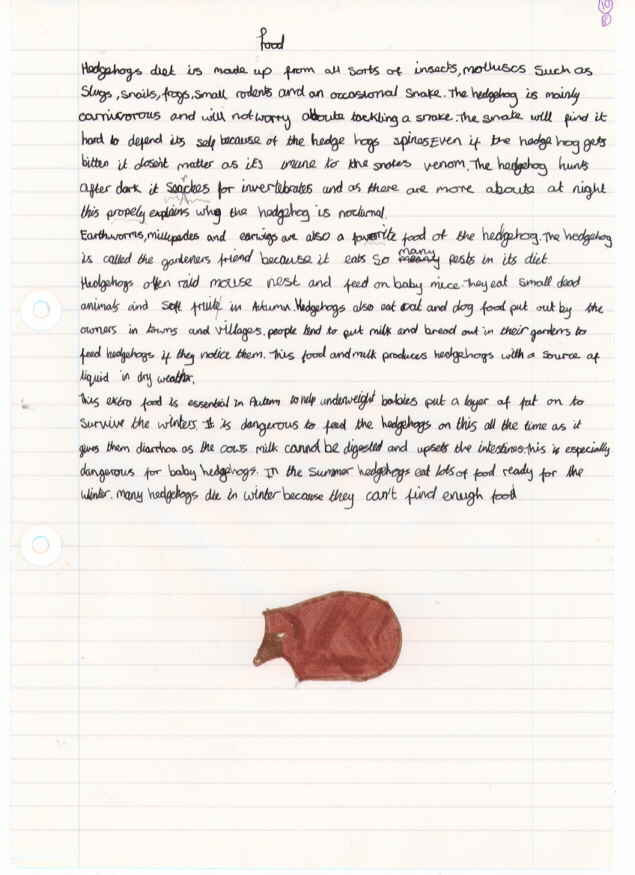 10
Food
Hedgehogs diet is made up from all sorts of insects, molluscs such as
Slugs, snails, frogs, small rodents and an occossional snake. The hedgehog is mainly
carnivorous and will not worry aboute tackling a snake. The snake will find it
hard to defend its self because of the hedge hogs spines Even if the hedge hog gets
bitten it dosent matter as it's imune to the snakes venom. The hedgehog hunts
after dark it searches for invertebrates and as there are more aboute at night
this propely explains why the hedgehog is nocturnal.
Earthworms, millepedes and earwigs are also a favorite food of the hedgehog. The hedgehog
is called the gardeners friend because it eats so many pests in its diet
Hedgehogs often raid mouse nest and feed on baby mice. They eat small dead
animals and soft fruits in Autumn. Hedgehogs also eat cat and dog food put out by the
owners in towns and villages. people tend to put milk and bread out in their gardens to
feed hedgehogs if they notice them. This food and milk produces hedgehogs with a source of
liquid in dry weather.
This extra food is essential in Autumn to help underweight babies put a layer of fat on to
survive the winters. It is dangerous to feed the hedgehogs on this all the time as it
gives them diarrhoa as the cows milk cannot be digested and upsets the intestines this is especially
dangerous for baby hedgehogs. In the summer hedgehogs eat lots of food ready for the
winter. many hedgehogs die in winter because they can't find enugh food